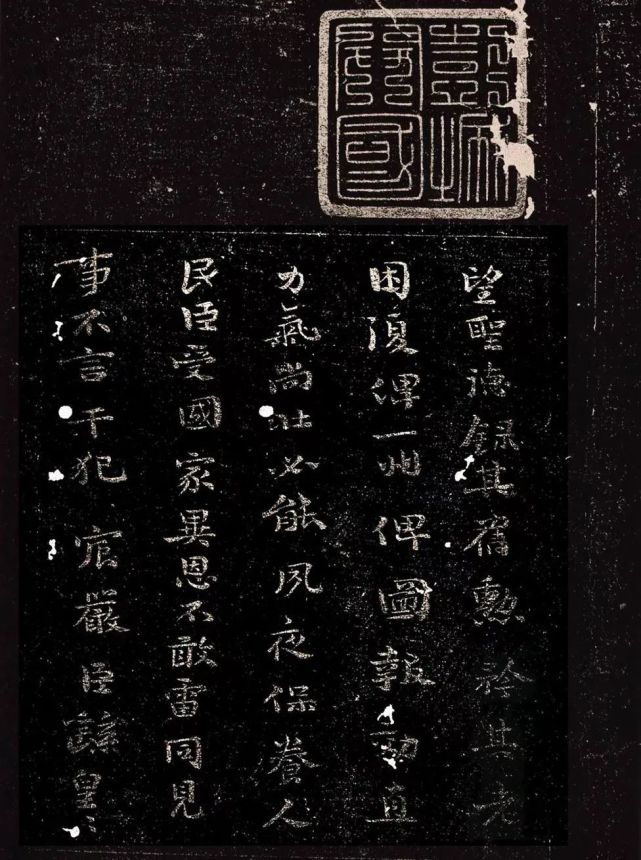 彭城
開國
望聖德録其舊勳矜其老
困復俾一州俾圖報効直
力氣尚壯必能夙夜保養人
民臣受國家異恩不敢雷同見
事不言干犯宸嚴臣繇皇〻